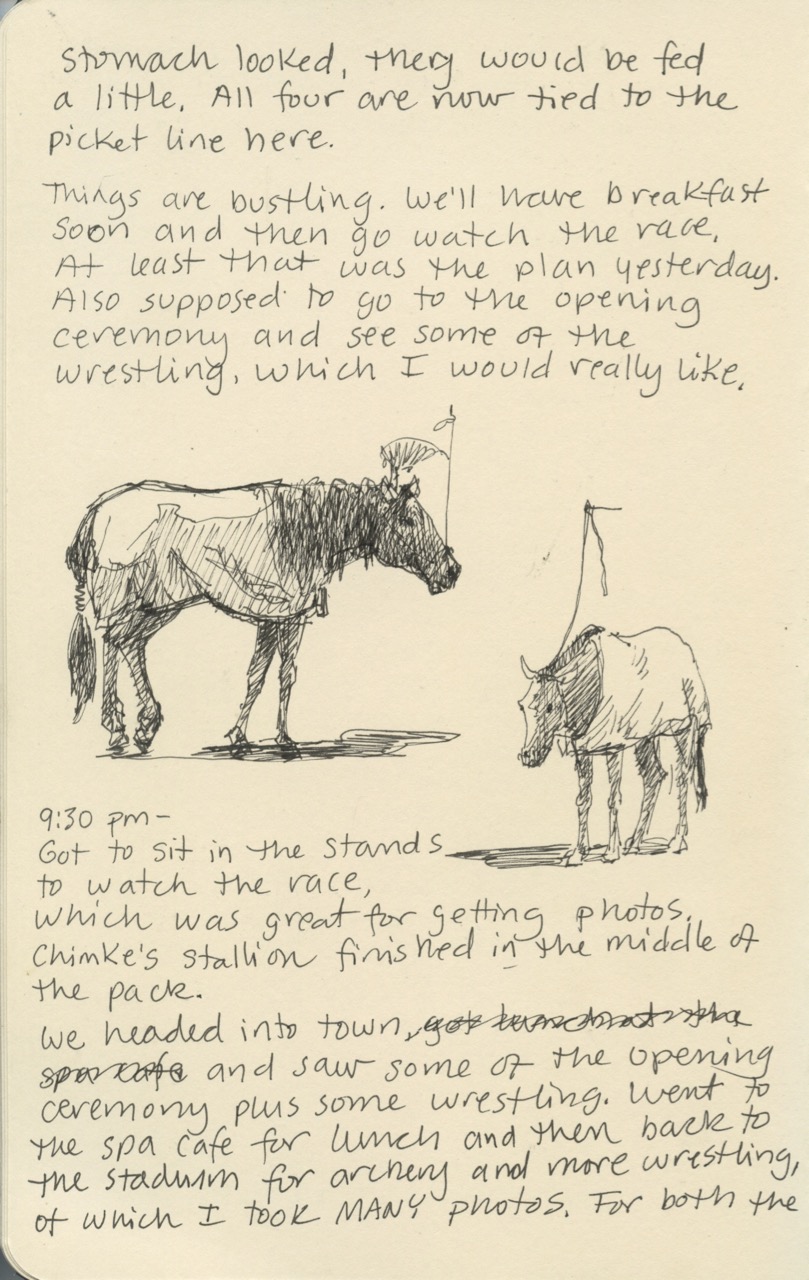 stomach looked, they would be fed
a little. All four are now tied to the
picket line here.
Things are bustling. We'll have breakfast
soon and then go watch the race.
At least that was the plan yesterday.
Also supposed to go to the opening
ceremony and see some of the
wrestling, which I would really like.
9:30 pm-
Got to sit in the stands
to watch the race,
which was great for getting photos.
Chimke's stallion finished in the middle of
the pack.
We headed into town, got lunch at the
spa cafe and saw some of the opening
ceremony plus some wrestling. Went to
the spa cafe for lunch and then back to
the stadium for archery and more wrestling,
of which I took MANY photos. For both the